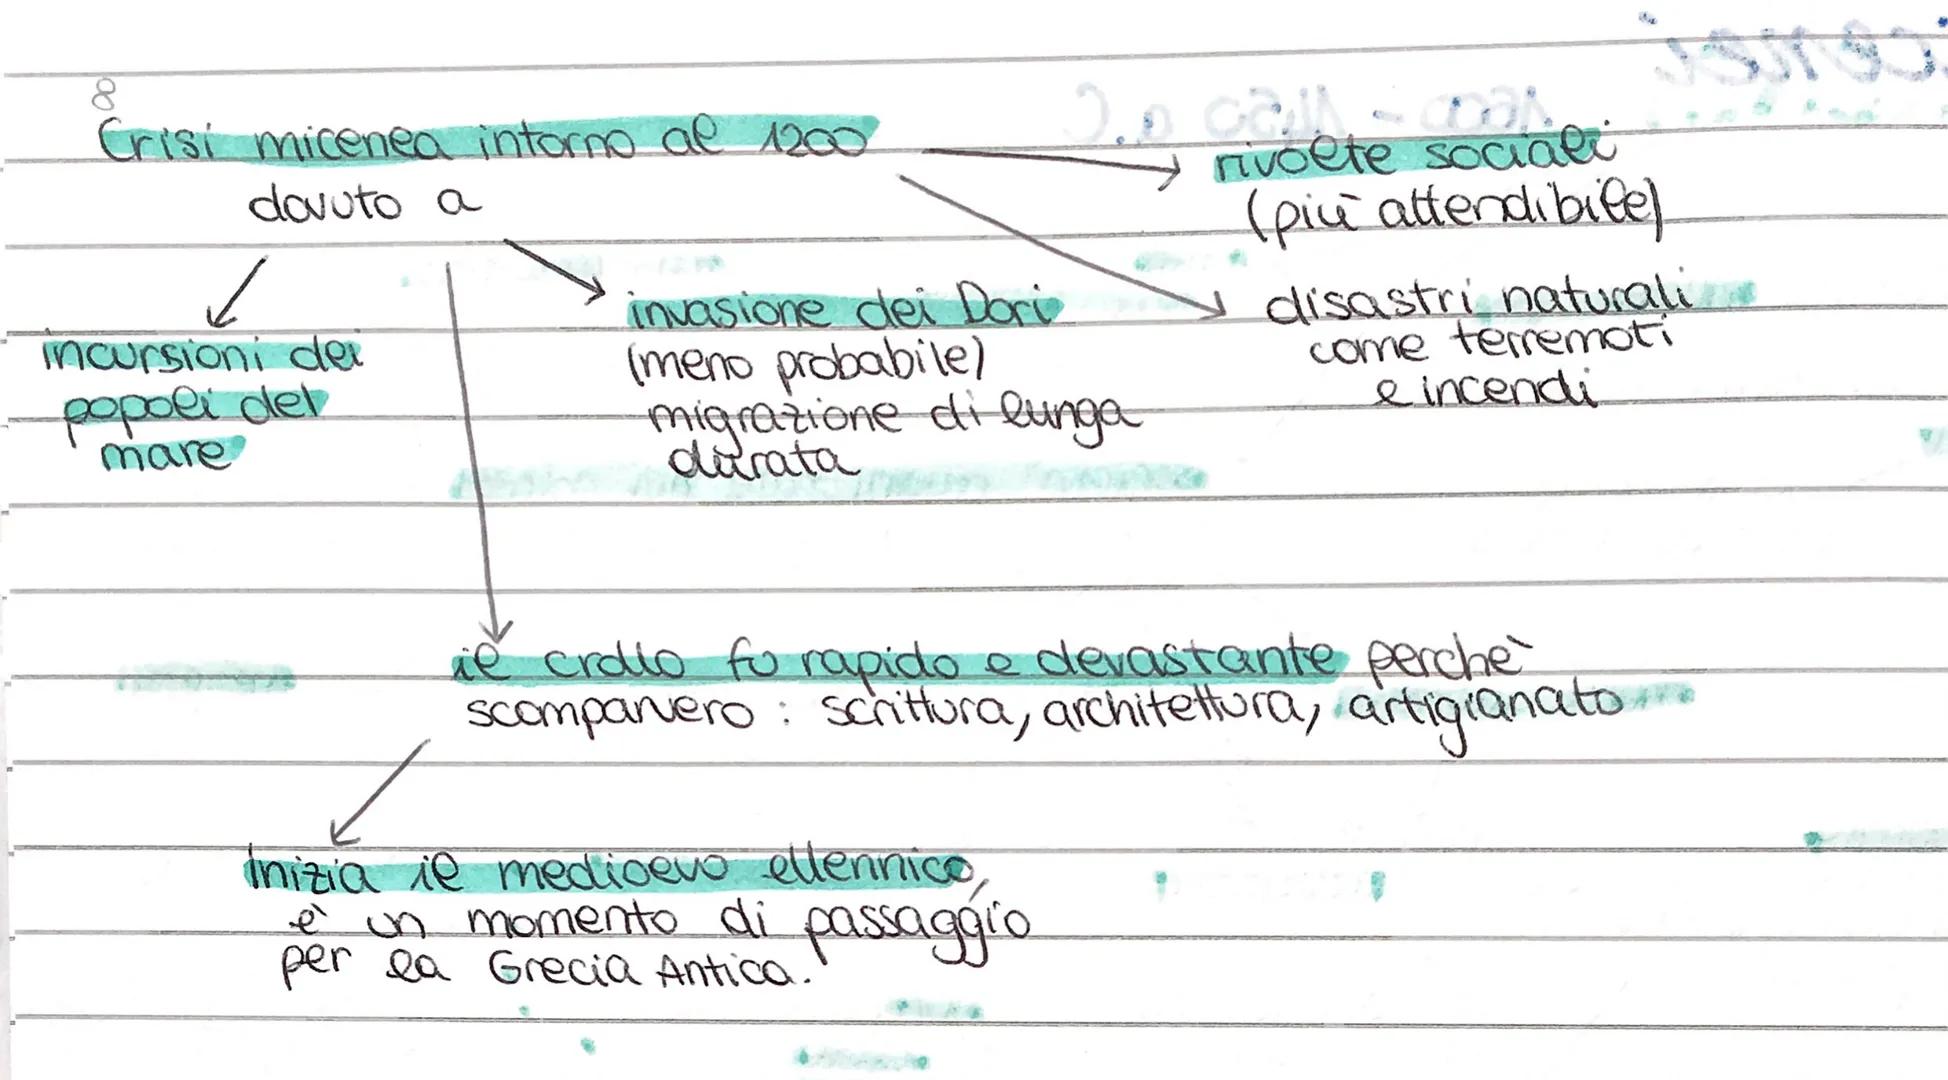 8
Crisi micenea intorno al 1200
dovuto a
rivolte sociali
(più attendibile)
incursioni dei
popoli del
mare
invasione dei Dori
(meno probabile)
migrazione di lunga
durata
disastri naturali
come terremoti
e incendi
il crollo fu rapido e devastante perchè
scomparvero : scrittura, architettura, artigianato
Inizia il medioevo ellennico,
è un momento di passaggio
per la Grecia Antica.
1600 - 1450 a.C